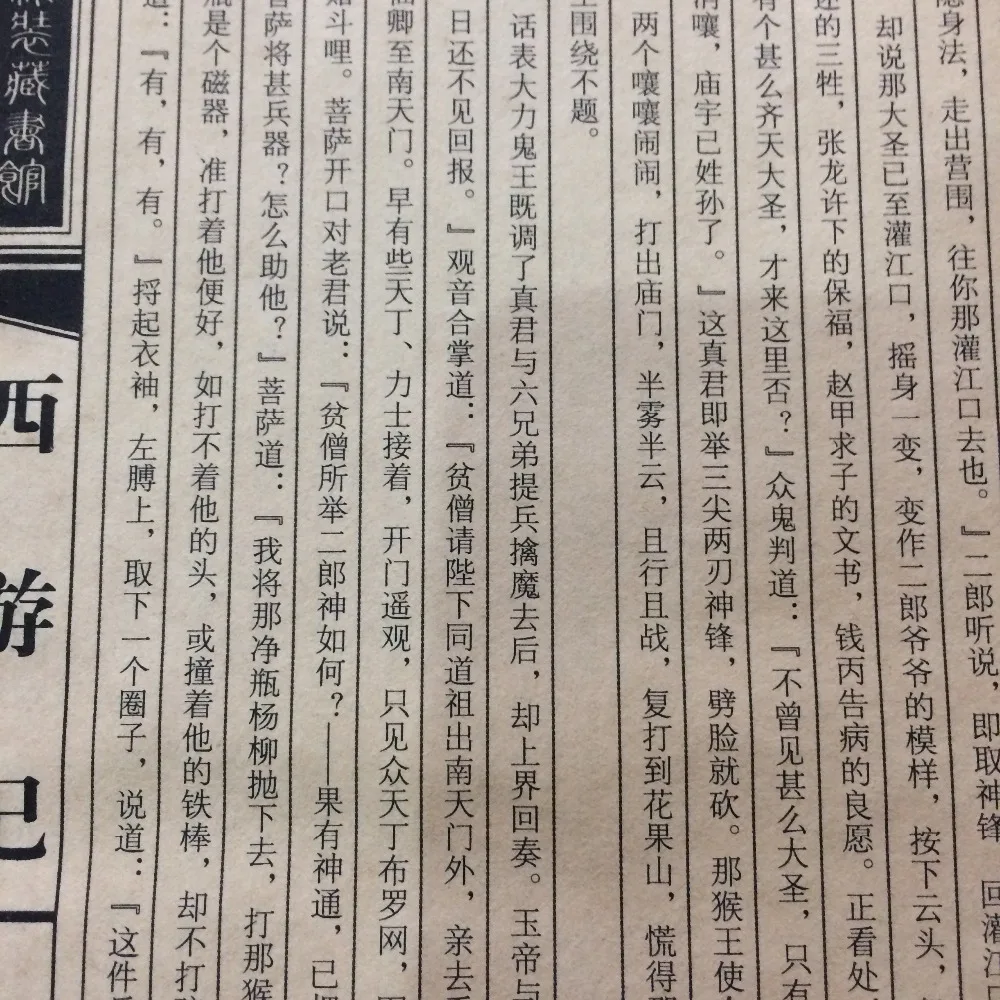 隐身法，走出营围，往你那灌江口去也。』二郎听说，即取神锋，回灌江口
却说那大圣已至灌江口，摇身一变，变作二郎爷爷的模样，按下云头，
的三牲，张龙许下的保福，赵甲求子的文书，钱丙告病的良愿。正看处
有个甚么齐天大圣，才来这里否？』众鬼判道：『不曾见甚么大圣，只有
嚷，庙宇已姓孙了。』这真君即举三尖两刃神锋，劈脸就砍。那猴王使
两个嚷嚷闹闹，打出庙门，半雾半云，且行且战，复打到花果山，慌得
围绕不题。
话表大力鬼王既调了真君与六兄弟提兵擒魔去后，却上界回奏。玉帝与
日还不见回报。』观音合掌道：『贫僧请陛下同道祖出南天门外，亲去
卿至南天门。早有些天丁、力士接着，开门遥观，只见众天丁布罗网，
斗哩。菩萨开口对老君说：『贫僧所举二郎神如何？——果有神通，已
菩萨将甚兵器？怎么助他？』菩萨道：『我将那净瓶杨柳抛下去，打那猴
瓶是个磁器，准打着他便好，如打不着他的头，或撞着他的铁棒，却不打
道：『有，有，有。』捋起衣袖，左膊上，取下一个圈子，说道：『这件
装藏書館
西游记